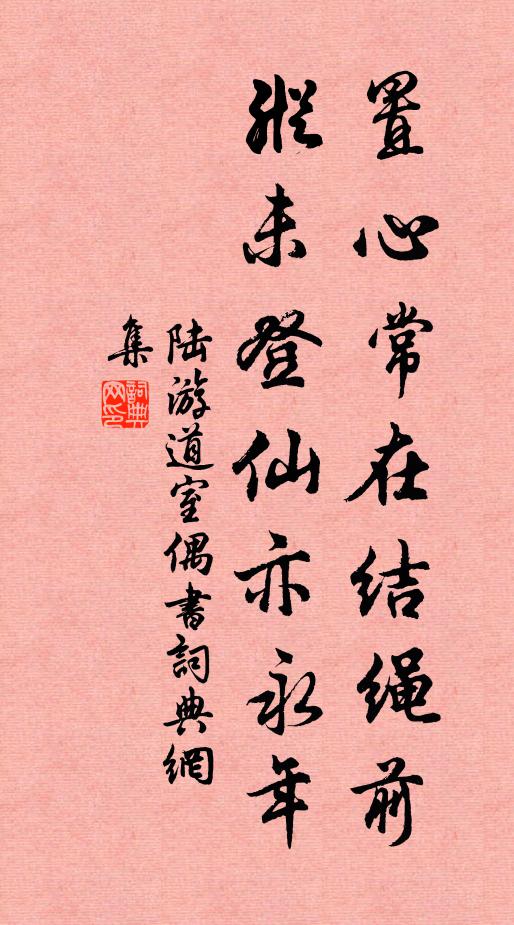 置心常在结绳前
纵未登仙亦永年
陆游道室偶书詞典網
集
詞典网印